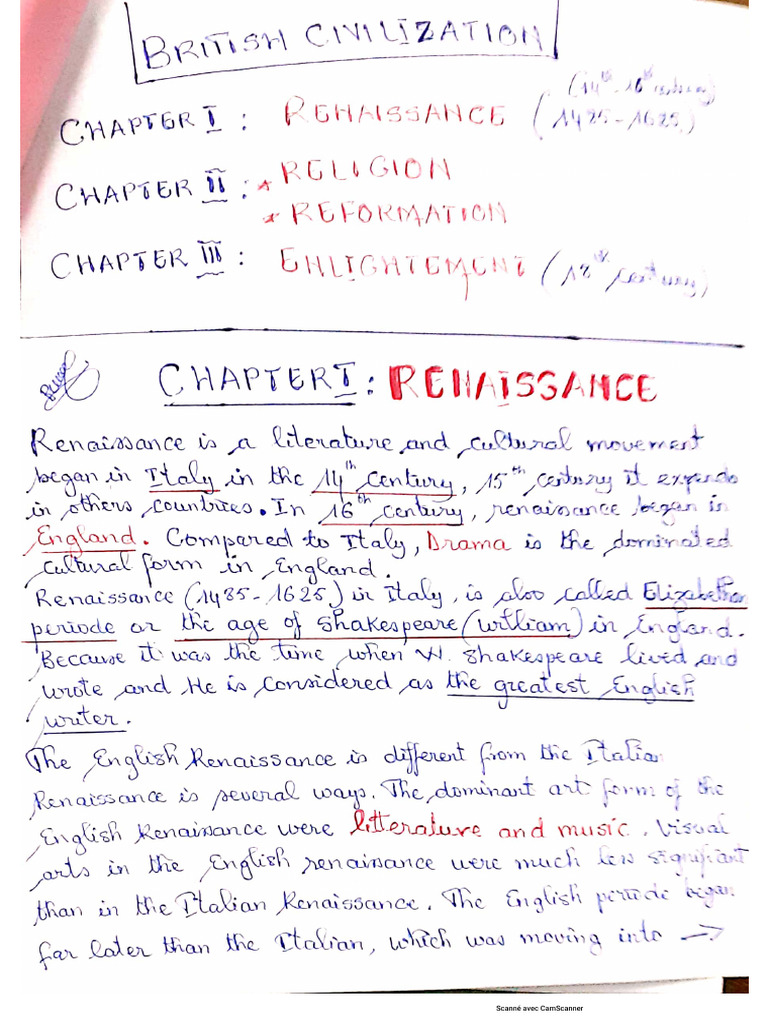 BRITISH CIVILIZATION
(14th-16th century)
CHAPTER I : RENAISSANCE (1485-1625)
CHAPTER II : * RELIGION
* REFORMATION
CHAPTER III : ENLIGHTEMENT (18th century)
CHAPTER I : RENAISSANCE
Renaissance is a literature and cultural movement
began in Italy in the 14th century, 15th century it expends
in others countries. In 16th century, renaissance began in
England. Compared to Italy, Drama is the dominated
cultural form in England.
Renaissance (1485-1625) in Italy, is also called Elizabethan
periode or the age of Shakespeare (william) in England.
Because it was the time when W. Shakespeare lived and
wrote and He is considered as the greatest English
writer.
The English Renaissance is different from the Italian
Renaissance is several ways. The dominant art form of the
English Renaissance were litterature and music. Visual
arts in the English renaissance were much less significant
than in the Italian Renaissance. The English periode began
far later than the Italian, which was moving into →
Scanné avec CamScanner